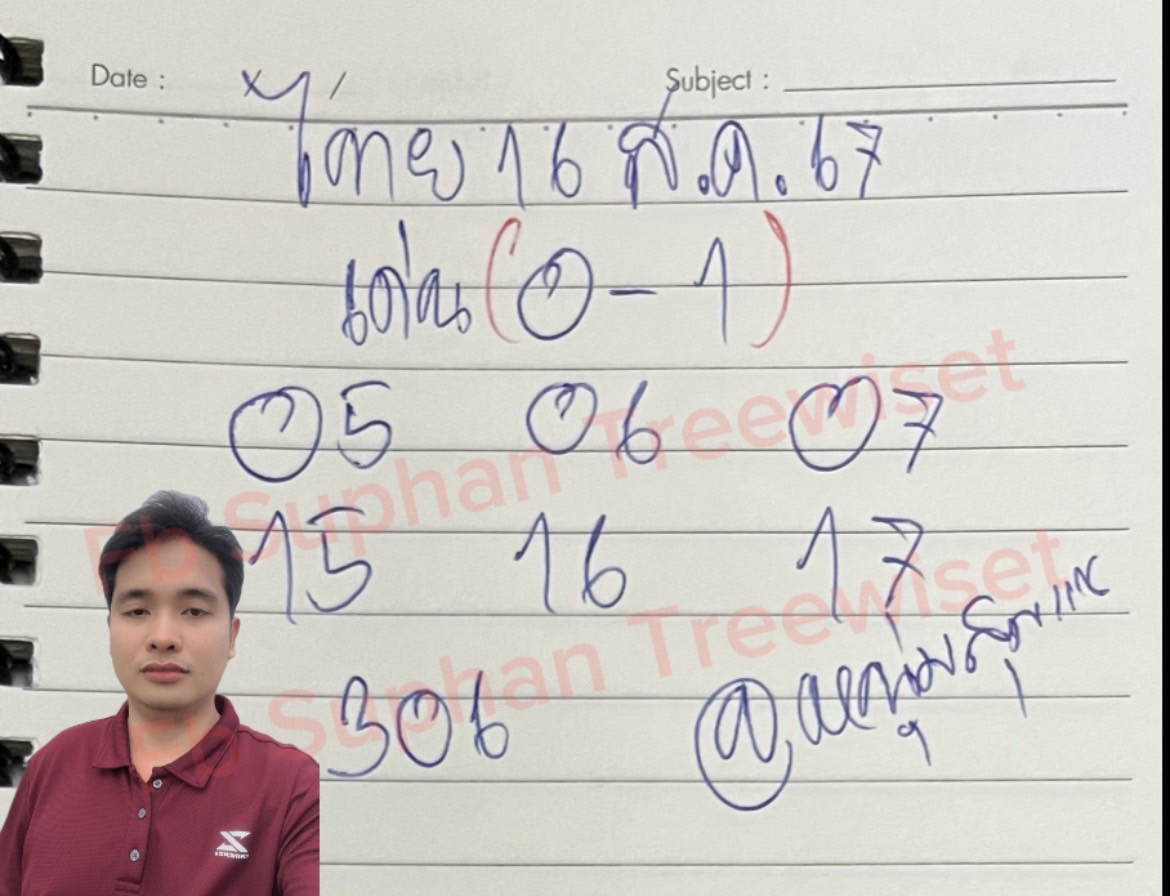 Date : x / Subject :
ไทย 16 ส.ค. 67
เด่น (0 - 1)
05 06 07
15 16 17
306
Fb Suphan Treewiset
Fb Suphan Treewiset